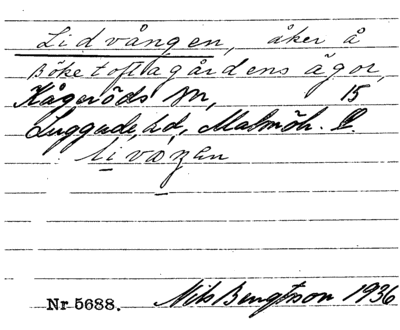 Lidvången, åker å
Böketoftagårdens ägor,
Kågeröds sn, 15
Luggude hd, Malmöh. L.
livåŋen
Nr 5688. Nils Bengtsson 1936